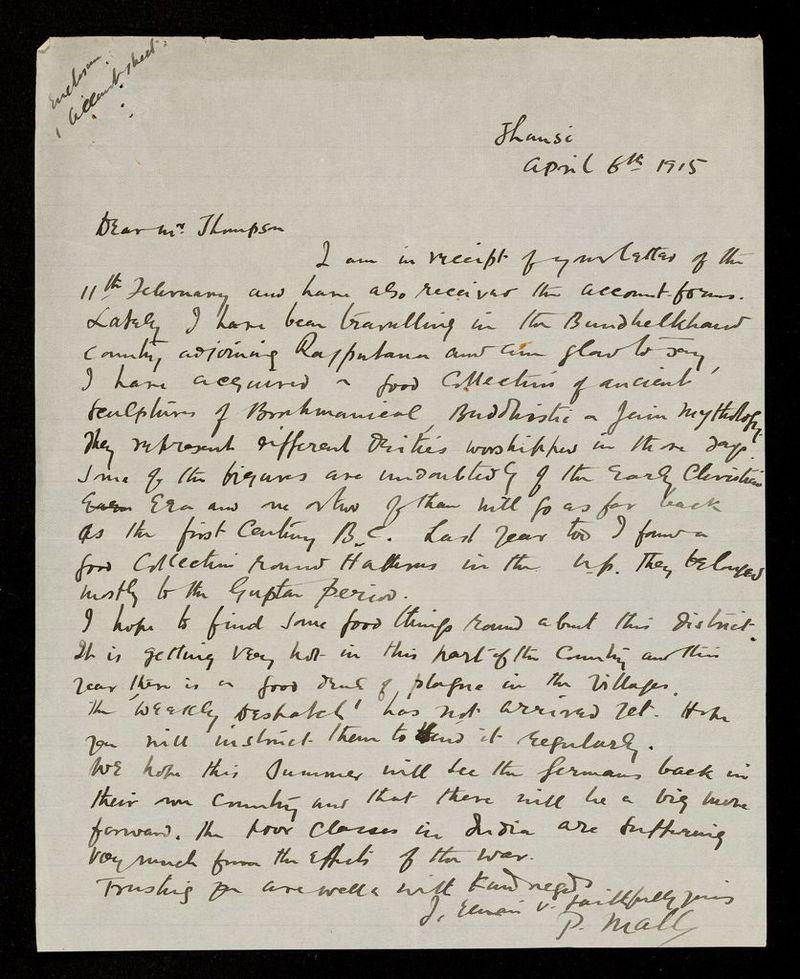 Enclosure
1 Account sheet.
Jhansi
April 6th 1915
Dear Mr Thompson
I am in receipt of your letter of the
11th February and have also received the account forms.
Lately I have been travelling in the Bundhelkhand
country adjoining Rajputana and am glad to say,
I have acquired a good collection of ancient
sculptures of Brahmanical, Buddhistic & Jain mythology.
They represent different deities worshipped in those days.
Some of the figures are undoubtedly of the Early Christian
Era and one or two of them will go as far back
as the first Century B.C. Last year too I found a
good collection round Hathras in the U.P. They belonged
mostly to the Guptan period.
I hope to find some good things round about this district.
It is getting very hot in this part of the country and this
year there is a good deal of plague in the villages.
The 'Weekly Despatch' has not arrived yet. Hope
you will instruct them to send it regularly.
We hope this Summer will see the Germans back in
their own country and that there will be a big move
forward. The poor classes in India are suffering
very much from the effects of the war.
Trusting you are well & with kind regards
I remain v. faithfully yours
P. Mall